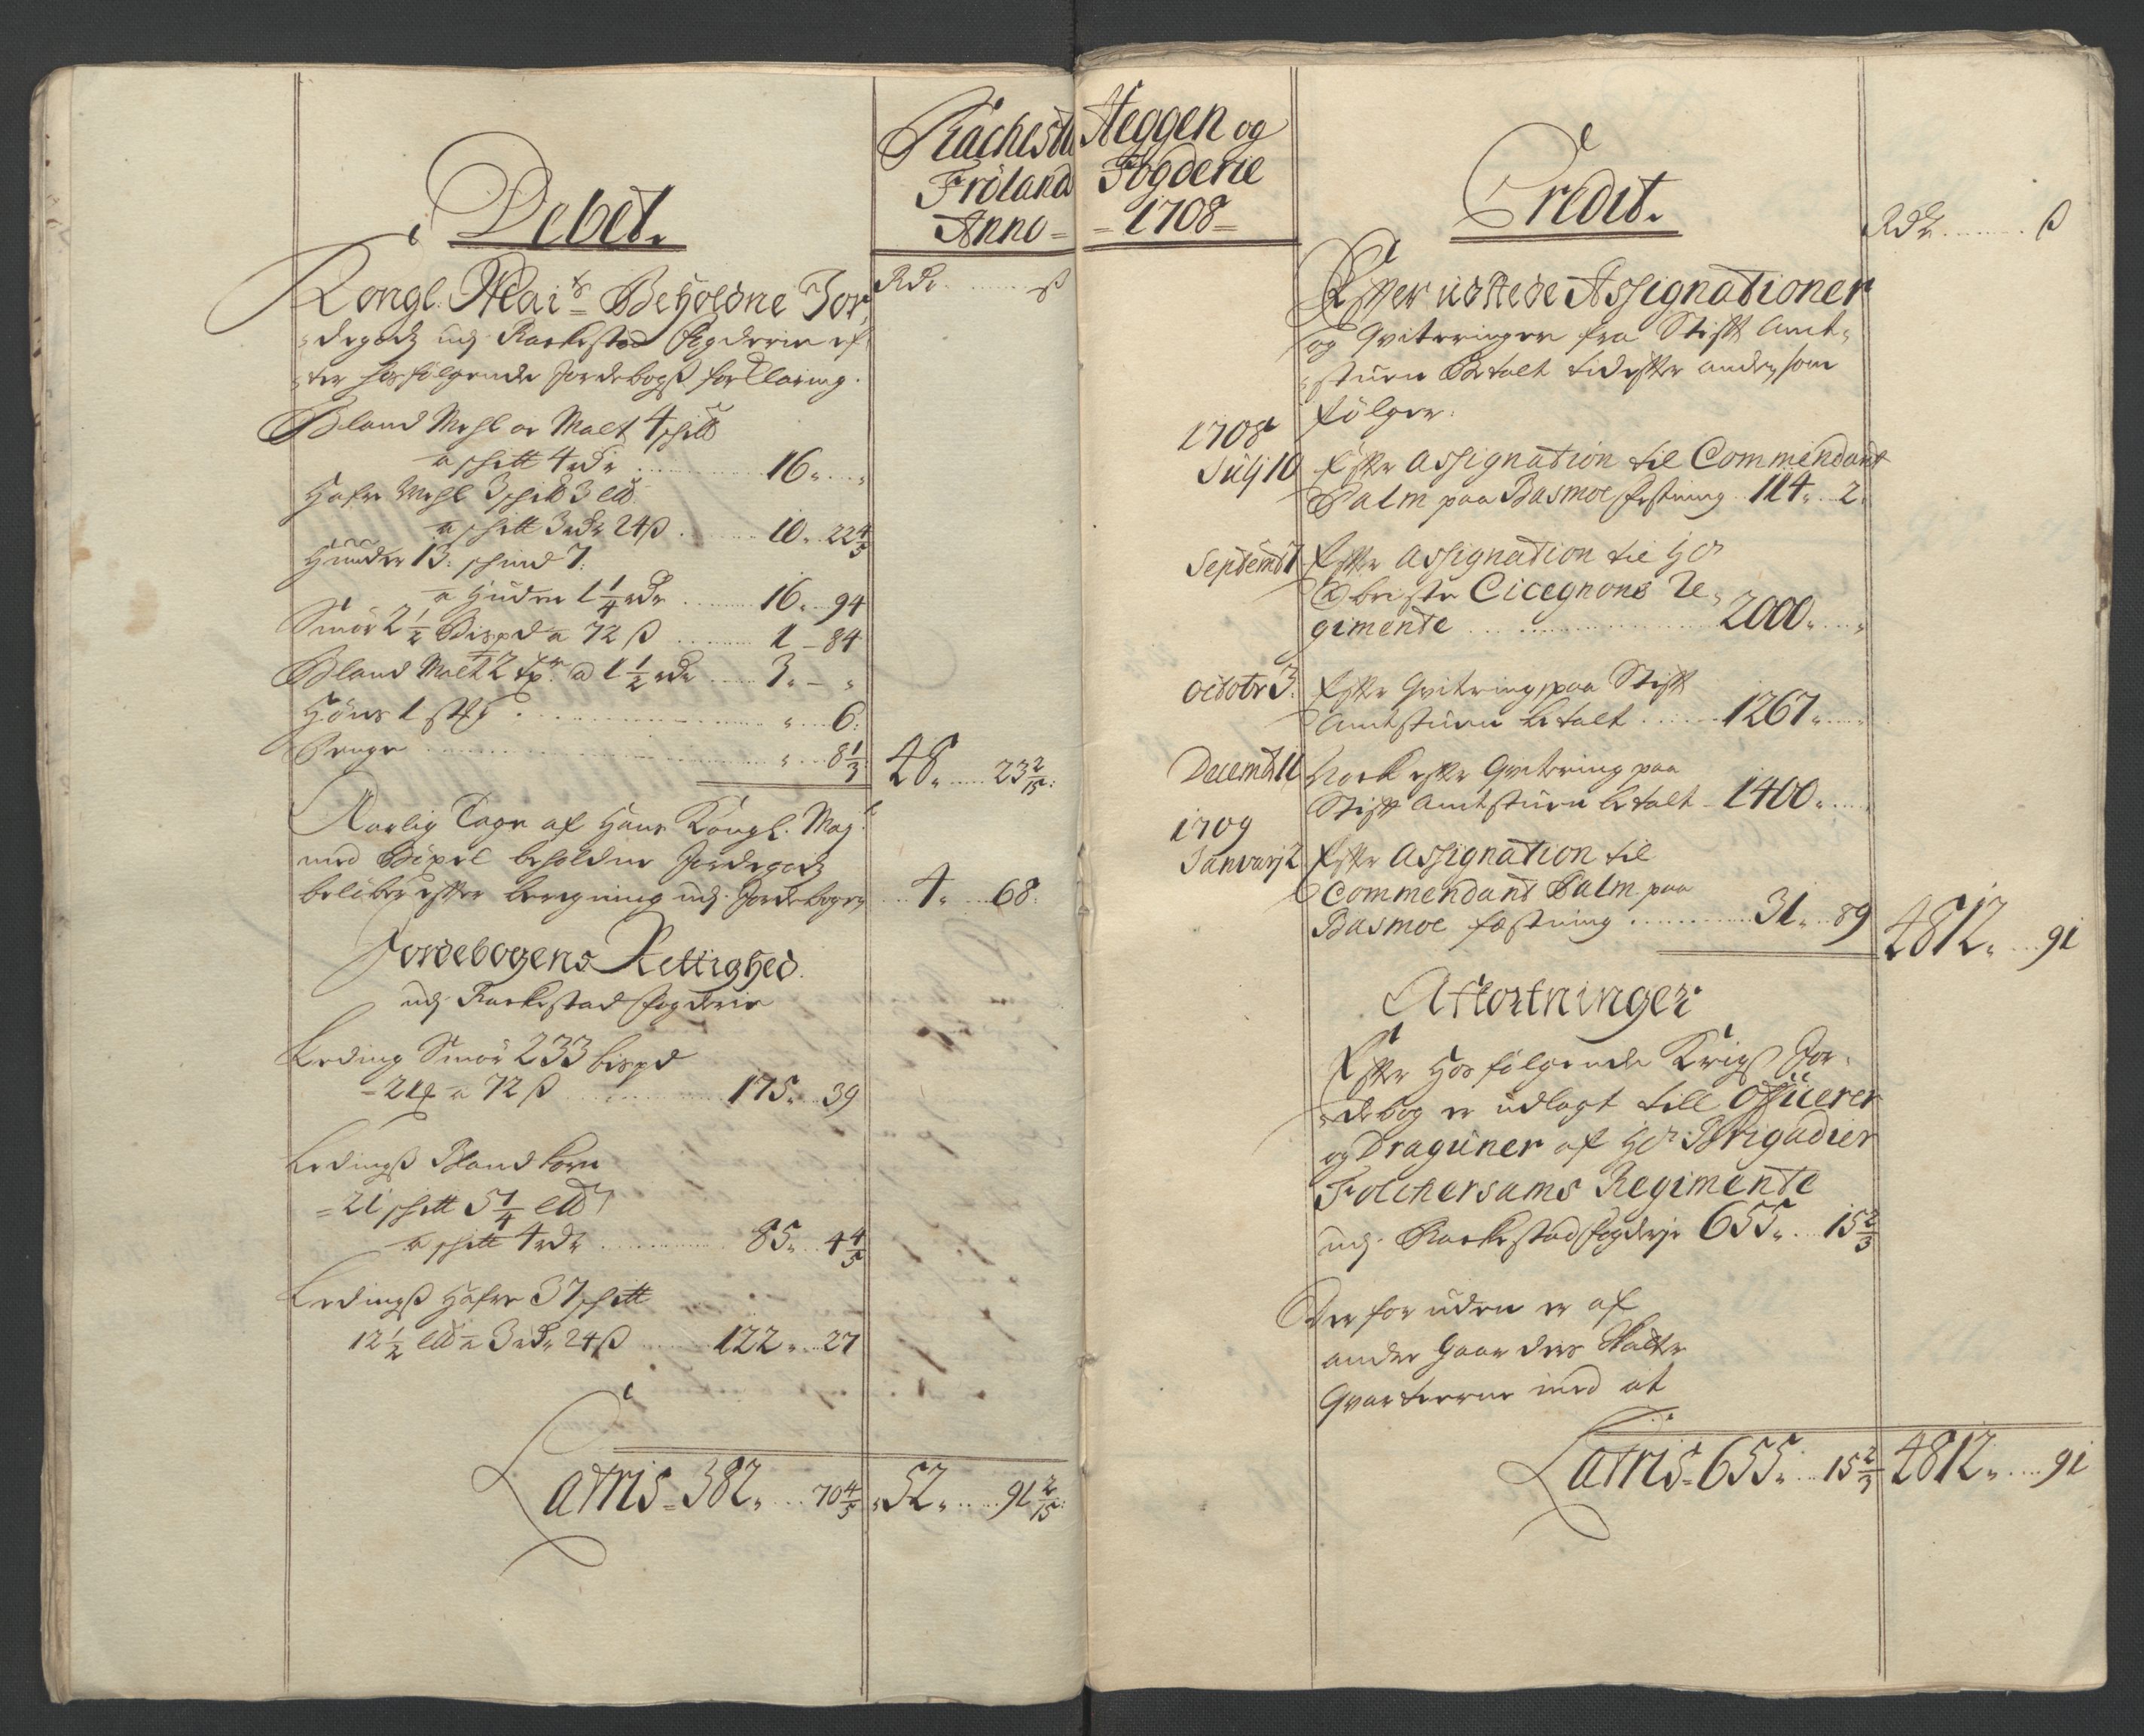 Debet.
Rachestd
Fröland
Anno =
Rdr ß
Kongl: Mai:ts Beholdne Jor,
=degodtz udj Rackestad Fogderie ef,
=ter hosfölgende Jordebogß forklaring.
Bland Mehl og Malt 4 schtt
a schtt 4 rdr 16 "
Hafre Mehl 3 schtt 3 ltt
a schtt 3 rdr 24 ß 10 " 22 4/5
Huuder 13: schind 7:
a Huden 1 1/4 rdr 16 " 94
Smör 2 1/2 Bispd a 72 ß 1 - 84
Bland Malt 2 tpn a 1 1/2 rdr 3 " - "
Höns 1 stk " 6:
Penge " 8 1/3
48 " 23 2/15:
Aarlig Tage af Hans Kongl: May:t
med Böxel beholdne Jordegodtz
beliber efter beregning udj Jordebogen 4 " 68:
Jordebogens Rettighed.
udj Rackestad Fogderie
Leding Smör 233 bispd
= 21 ₰ a 72 ß 175 " 39
Ledingß Bland korn
= 21 schtt 5 1/4 ltt
a schtt 4 rdr 85 " 4 4/5
Ledingß Hafre 37 schtt
12 1/2 ltt a 3 rdr 24 ß 122 " 27
Latris = 382 " 70 4/5 " 52 " 91 2/15:
Heggen og
Fogderie
= 1708 =
Credit.
Rdr ß
Efter udstede Assignationer
og Qviteringer fra Stift Amt=
=stuen Betalt tid efter anden som
fölger:
1708
Julj 10 Efter Assignation til Commendant
Palm paa Basmoe festning 114 " 2 "
Septembr 7 Efter Assignation til Hr
Obriste Cicegnons Re=
gimente 2000 " "
Octobr 3. Efter Qvitering paa Stift
Amtstuen betalt 1267 " "
Decembr 11 Nock efter Qvitering paa
Stift Amtstuen betalt 1400 " "
1709
Januarj 2 Efter Assignation til
Commendant Palm paa
Basmoe festning 31 " 89
4812 " 91
Afkortninger
Efter Hos fölgende Krigß Jor=
=debog er udlagt till Officerer
og Dragüner af Hr Brigadier
Folckersams Regimente
udj Rackestad Fogderje 655 " 15 2/3
Der for uden er af
andre Gaarders Skatter
Qvarteerne med at
Latris = 655 " 15 2/3 4812 " 91